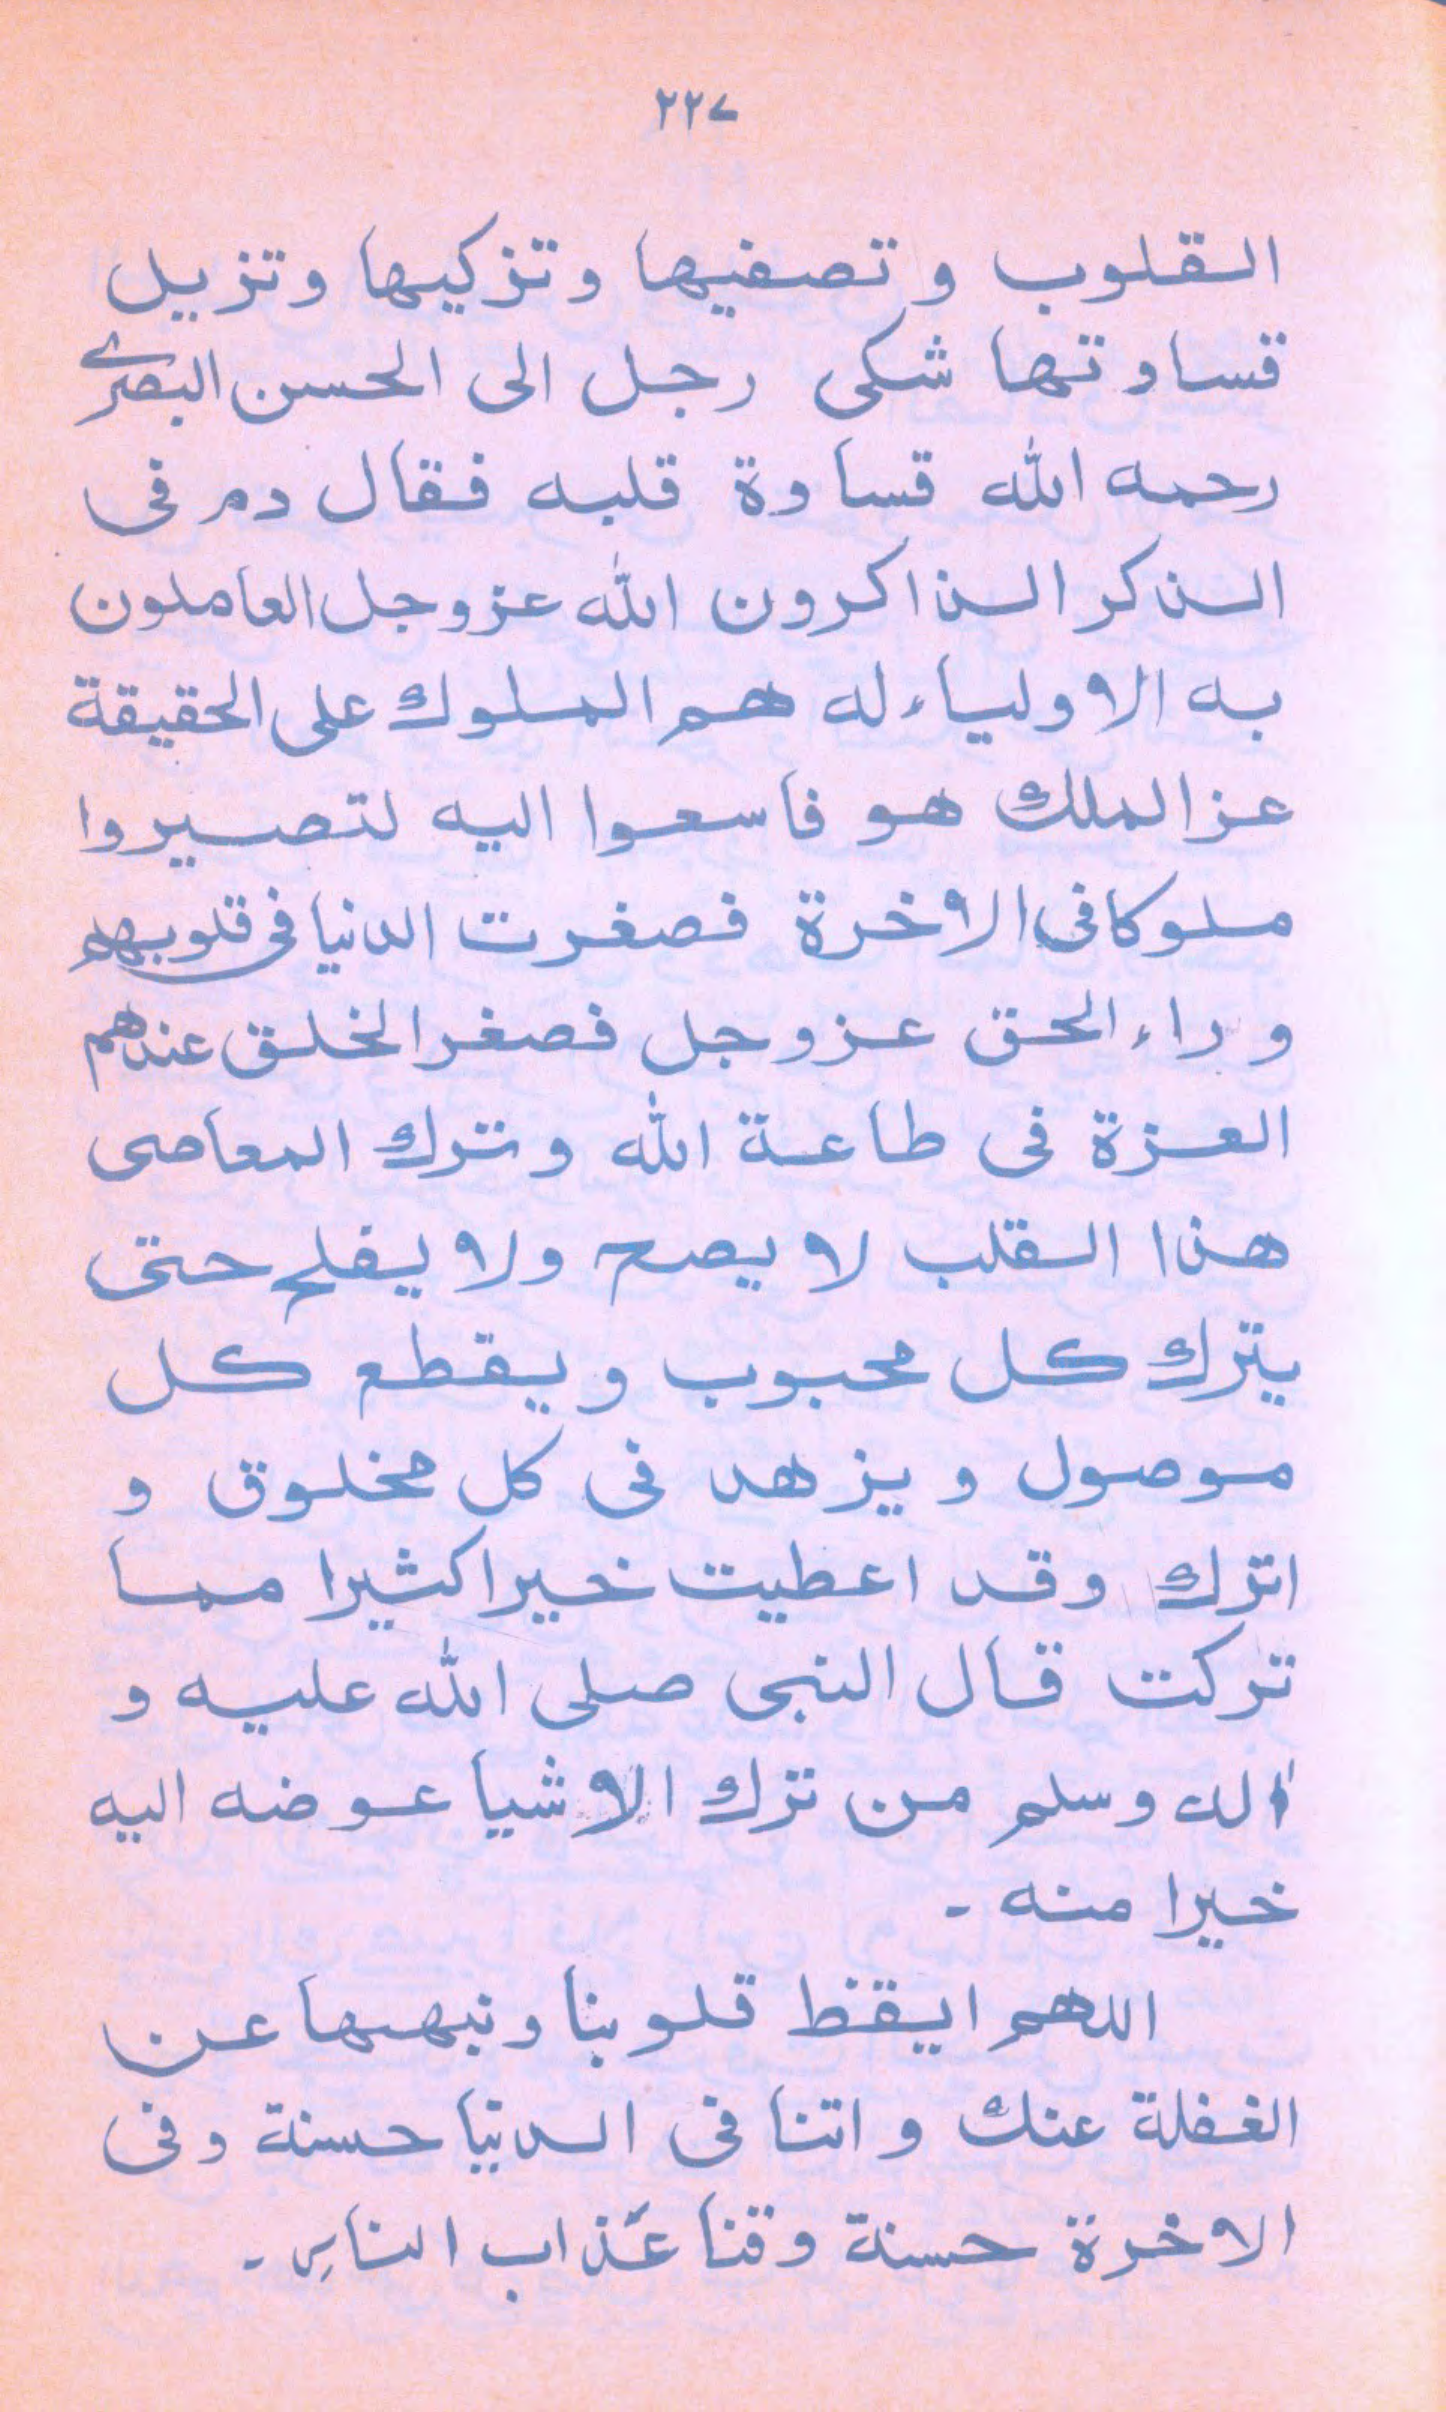 ٢٢٧
القلوب و تصفيها و تزكيها و تزيل
قساوتها شكى رجل الى الحسن البصرى
رحمه الله قساوة قلبه فقال دم فى
الذكر الذاكرون الله عزوجل العاملون
به الاولياء له هم الملوك على الحقيقة
عز الملك هو فاسعوا اليه لتصيروا
ملوكا فى الاخرة فصغرت الدنيا فى قلوبهم
و راء الحق عزوجل فصغر الخلق عندهم
العزة فى طاعة الله و ترك المعاصى
هذا القلب لا يصح ولا يفلح حتى
يترك كل محبوب و يقطع كل
موصول و يزهد فى كل مخلوق و
اترك وقد اعطيت خيرا كثيرا مما
تركت قال النبى صلى الله عليه و
اٰله وسلم من ترك الاشيا عوضه اليه
خيرا منه -
اللهم ايقظ قلوبنا و نبهها عن
الغفلة عنك و اتنا فى الدنيا حسنة و فى
الاخرة حسنة وقنا عذاب النار -